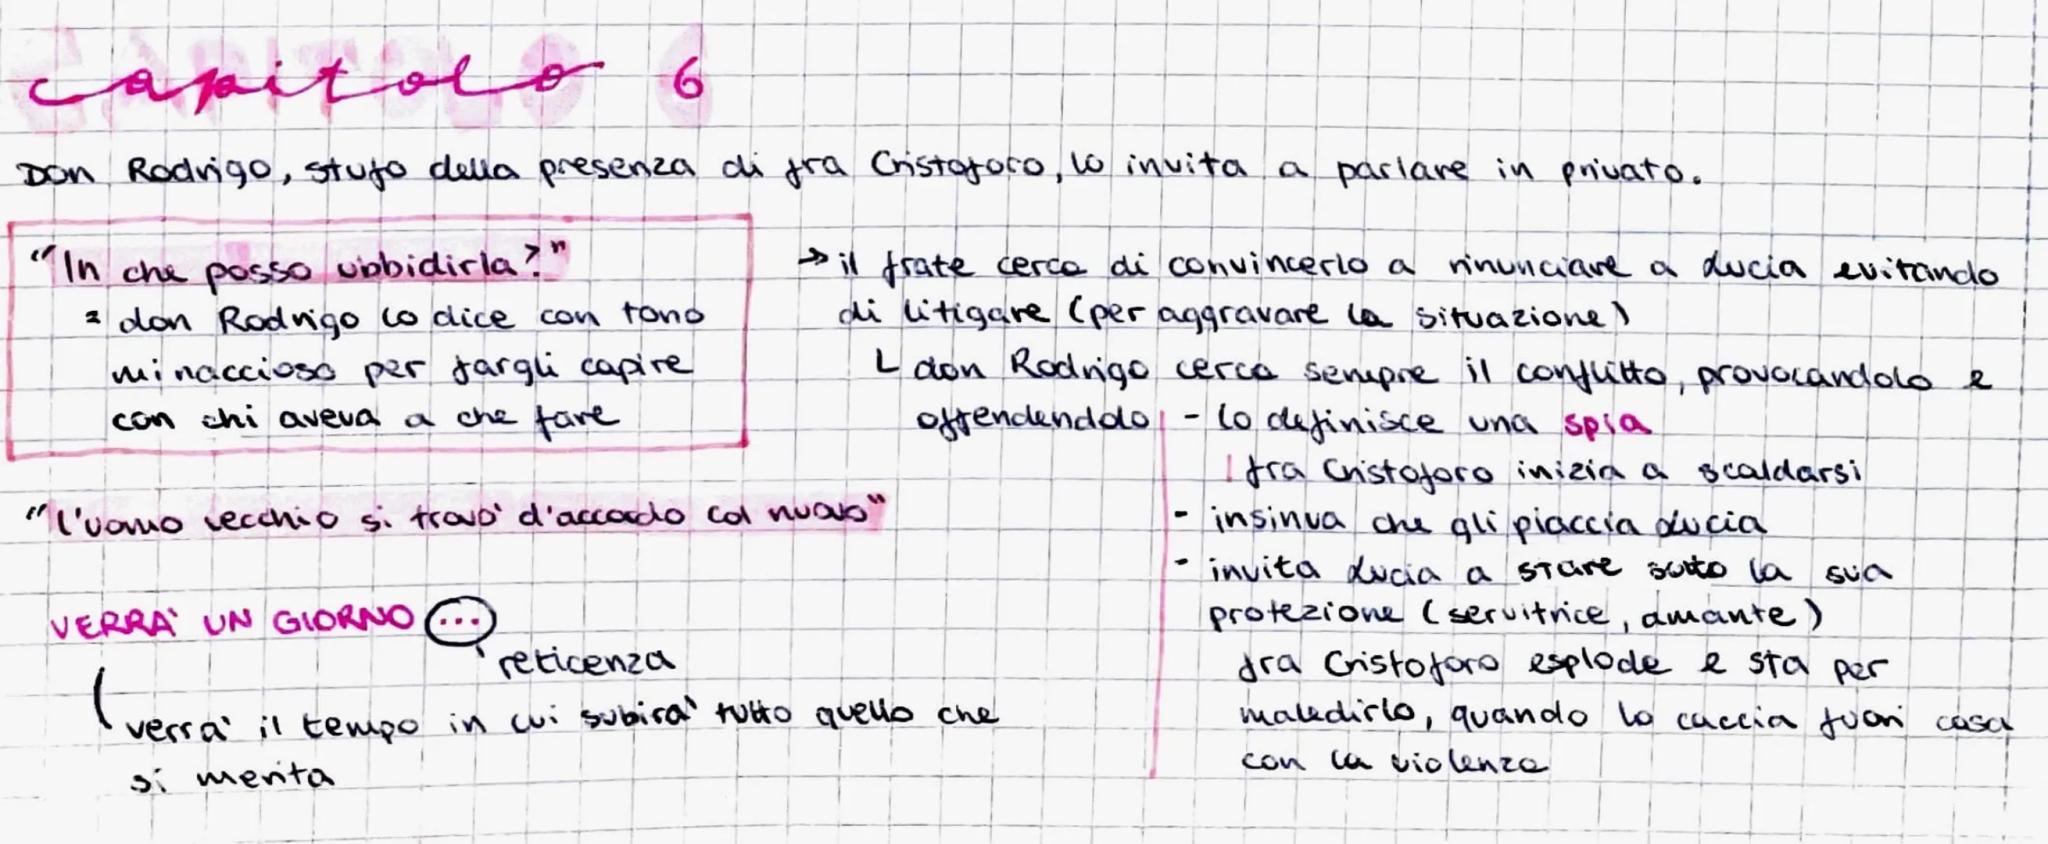 capitolo 6
Don Rodrigo, stufo della presenza di fra Cristoforo, lo invita a parlare in privato.
"In che posso ubbidirla?"
= don Rodrigo lo dice con tono
minaccioso per fargli capire
con chi aveva a che fare
"l'uomo vecchio si trovò d'accordo col nuovo"
VERRA' UN GIORNO ...
reticenza
verra' il tempo in cui subira' tutto quello che
si merita
→ il frate cerca di convincerlo a rinunciare a Lucia evitando
di litigare (per aggravare la situazione)
└ don Rodrigo cerca sempre il conflitto, provocandolo e
offendendolo - lo definisce una spia
fra Cristoforo inizia a scaldarsi
- insinua che gli piaccia Lucia
- invita Lucia a stare sotto la sua
protezione (servitrice, amante)
fra Cristoforo esplode e sta per
maledirlo, quando lo caccia fuori casa
con la violenza